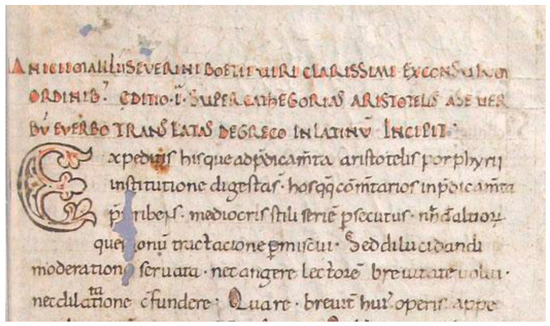 ANICII MALLII SEVERINI BOETII VIRI CLARISSIMI EXCONSULUM
ORDINIB; EDITIO I SUPER CATHEGORIAS ARISTOTELIS A SE VER
BŪ E VERBO TRANSLATAS DE GRECO IN LATINŪ INCIPIT·
Expeditis hisque ad p̄dicam̄ta aristotelis porphyrii
institutione digesta s̄· hosq; com̄tarios in p̄dicam̄ta
mediocris stili seriē ꝑsecutus·
tractacione ꝑmiscui· Sed dilucidandi
moderatione servata· nec angere lectorē brevitate volui·
nec dilatatione c̄fundere· Quare· brevit̄ hui' operis appe